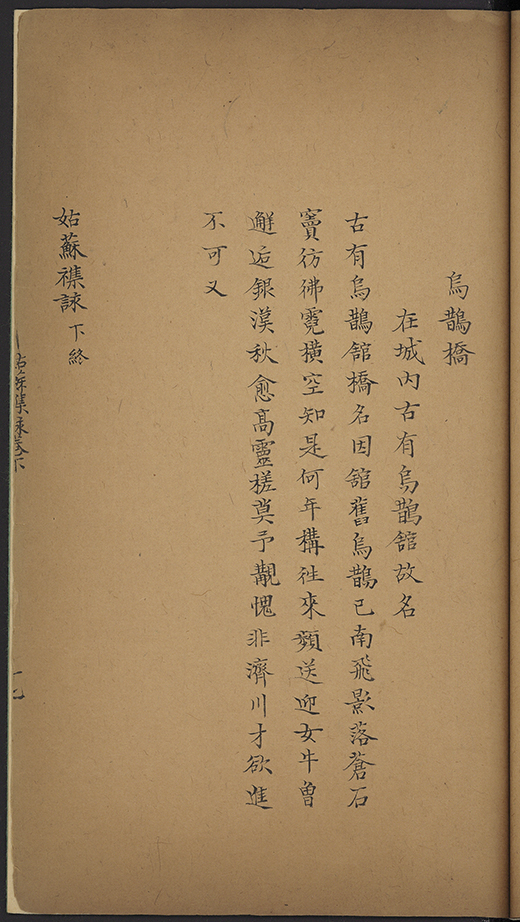 烏鵲橋
在城內古有烏鵲舘故名
古有烏鵲舘橋名因舘舊烏鵲已南飛影落蒼石
竇彷彿霓橫空知是何年構徃來頻送迎女牛曾
邂逅銀漢秋愈高靈槎莫予覯愧非濟川才欲進
不可又
姑蘇襍詠 下終